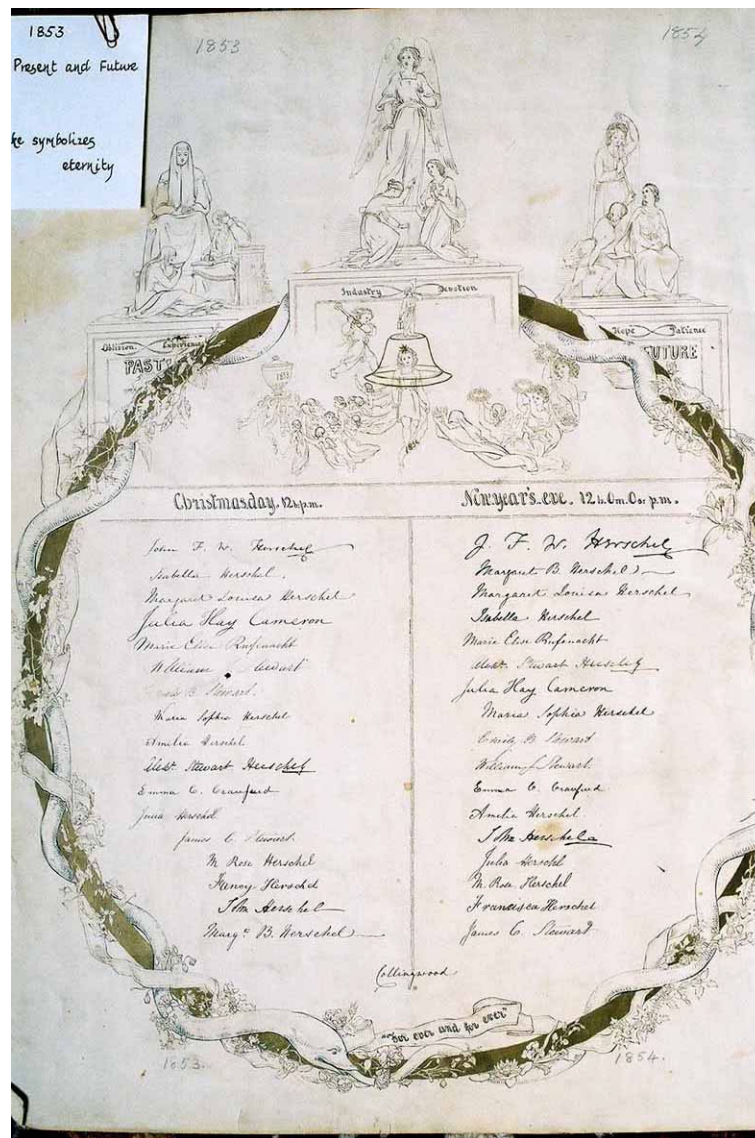 1853
Present and Future
ke symbolizes
eternity
1853
1854
Industry Devotion
Oblivion Experience
PAST
Hope Patience
FUTURE
1853
1854
Christmasday. 12h.p.m.
John F. W. Herschel
Isabella Herschel.
Margaret Louisa Herschel
Julia Hay Cameron
Marie Elise Rufenacht
William Stewart
B. Steward.
Maria Sophia Herschel
Amelia Herschel
Alexr. Stewart Herschel
Emma C. Craufurd
Julia Herschel
James C. Steward.
M Rose Herschel
Fanny Herschel
John Herschel
Margt. B. Herschel
New year's-eve. 12h.0m.0s. p.m.
J. F. W. Herschel
Margaret B. Herschel
Margaret Louisa Herschel
Isabella Herschel
Marie Elise Rufenacht
Alexr. Stewart Herschel
Julia Hay Cameron
Maria Sophia Herschel
Emily B Steward
William Stewart.
Emma C. Craufurd
Amelia Herschel.
John Herschel
Julia Herschel
M. Rose Herschel
Francisca Herschel
James C. Steward
Collingwood
"for ever and for ever"
1853.
1854.